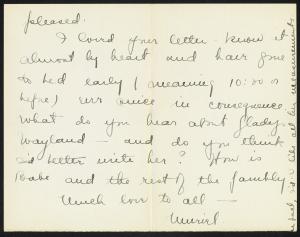 pleased.
I loved your letter - know it
almost by heart and have gone
to bed early (meaning 10:30 or
before) ever since in consequence.
What do you hear about Gladys
Wayland - and do you think
I'd better write her? How is
Babe and the rest of the fambly.
Much love to all -
Muriel